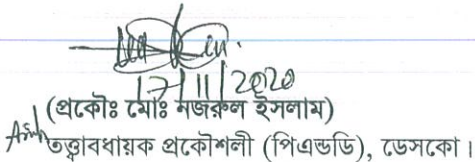 17/11/2020
(প্রকৌঃ মোঃ নজরুল ইসলাম)
তত্ত্বাবধায়ক প্রকৌশলী (পিএন্ডডি), ডেসকো।